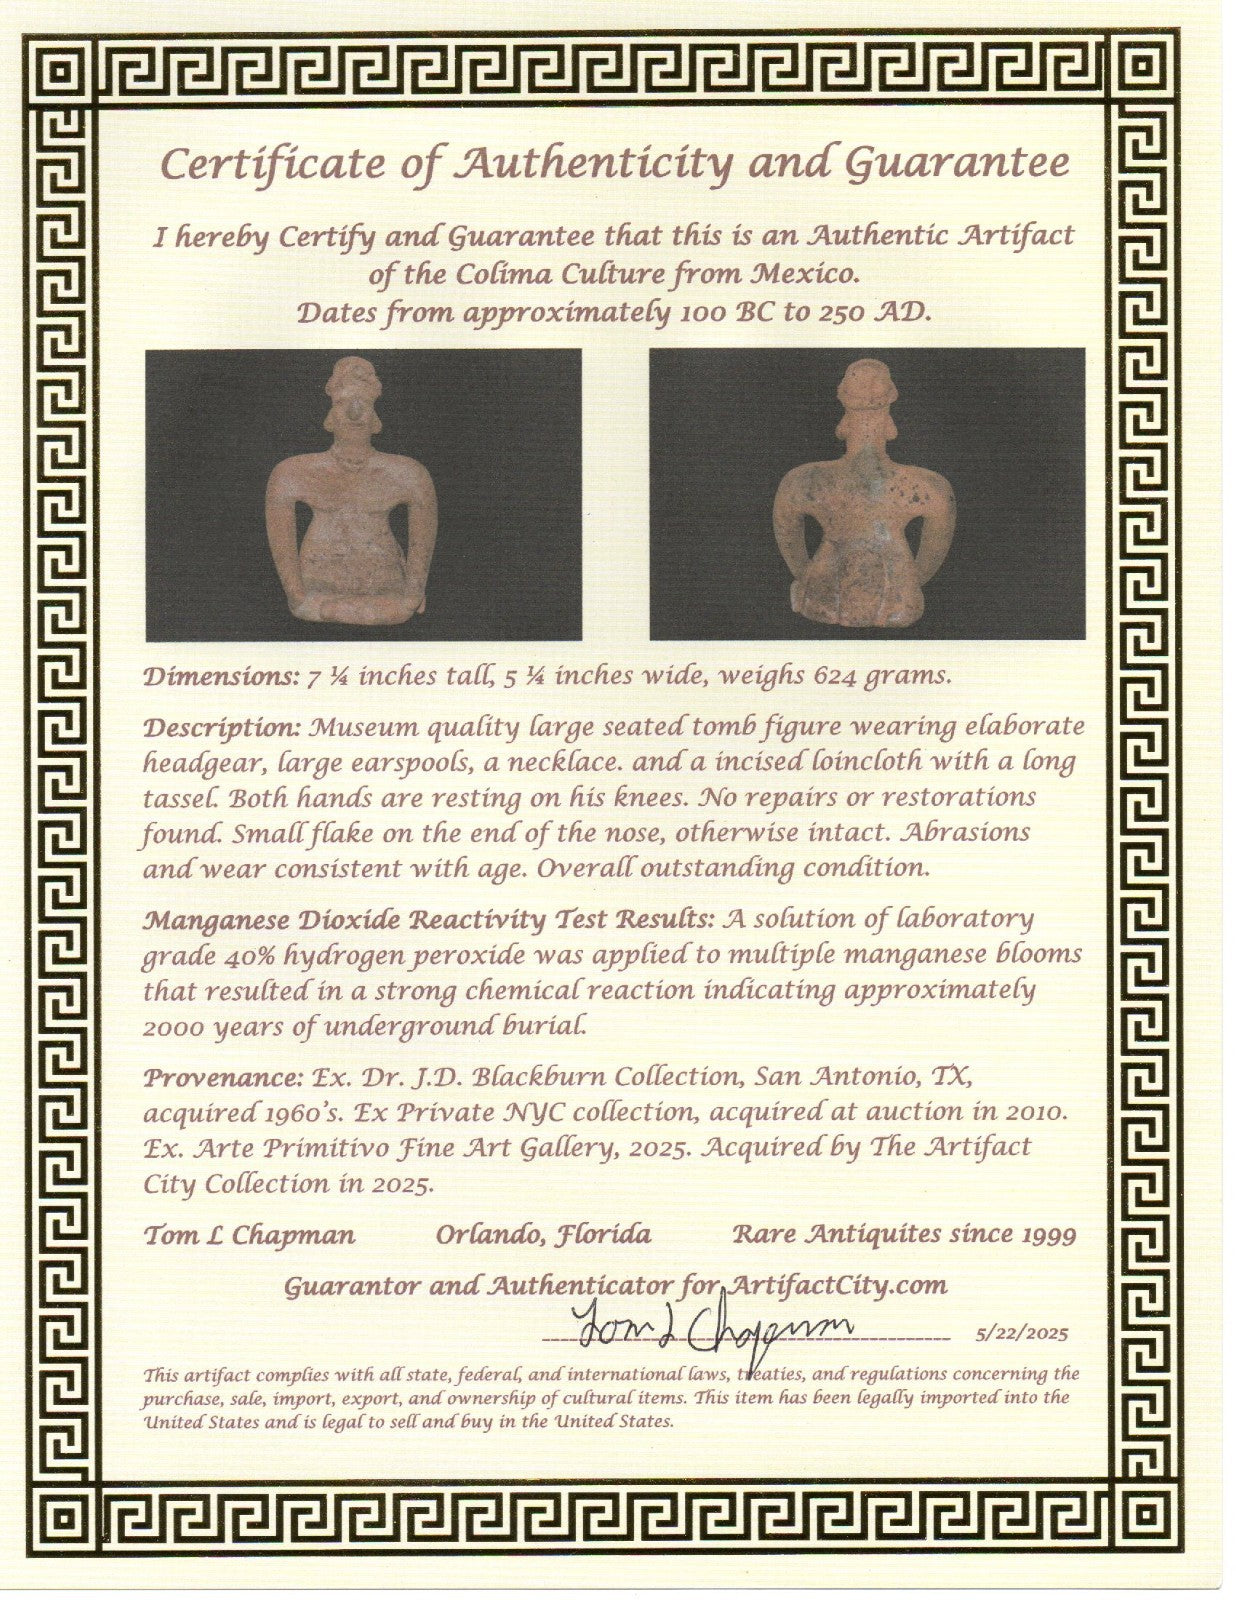 Certificate of Authenticity and Guarantee
I hereby Certify and Guarantee that this is an Authentic Artifact
of the Colima Culture from Mexico.
Dates from approximately 100 BC to 250 AD.
Dimensions: 7 ¼ inches tall, 5 ¼ inches wide, weighs 624 grams.
Description: Museum quality large seated tomb figure wearing elaborate
headgear, large earspools, a necklace. and a incised loincloth with a long
tassel. Both hands are resting on his knees. No repairs or restorations
found. Small flake on the end of the nose, otherwise intact. Abrasions
and wear consistent with age. Overall outstanding condition.
Manganese Dioxide Reactivity Test Results: A solution of laboratory
grade 40% hydrogen peroxide was applied to multiple manganese blooms
that resulted in a strong chemical reaction indicating approximately
2000 years of underground burial.
Provenance: Ex. Dr. J.D. Blackburn Collection, San Antonio, TX,
acquired 1960's. Ex Private NYC collection, acquired at auction in 2010.
Ex. Arte Primitivo Fine Art Gallery, 2025. Acquired by The Artifact
City Collection in 2025.
Tom L Chapman Orlando, Florida Rare Antiquites since 1999
Guarantor and Authenticator for ArtifactCity.com
Tom L Chapman 5/22/2025
This artifact complies with all state, federal, and international laws, treaties, and regulations concerning the
purchase, sale, import, export, and ownership of cultural items. This item has been legally imported into the
United States and is legal to sell and buy in the United States.